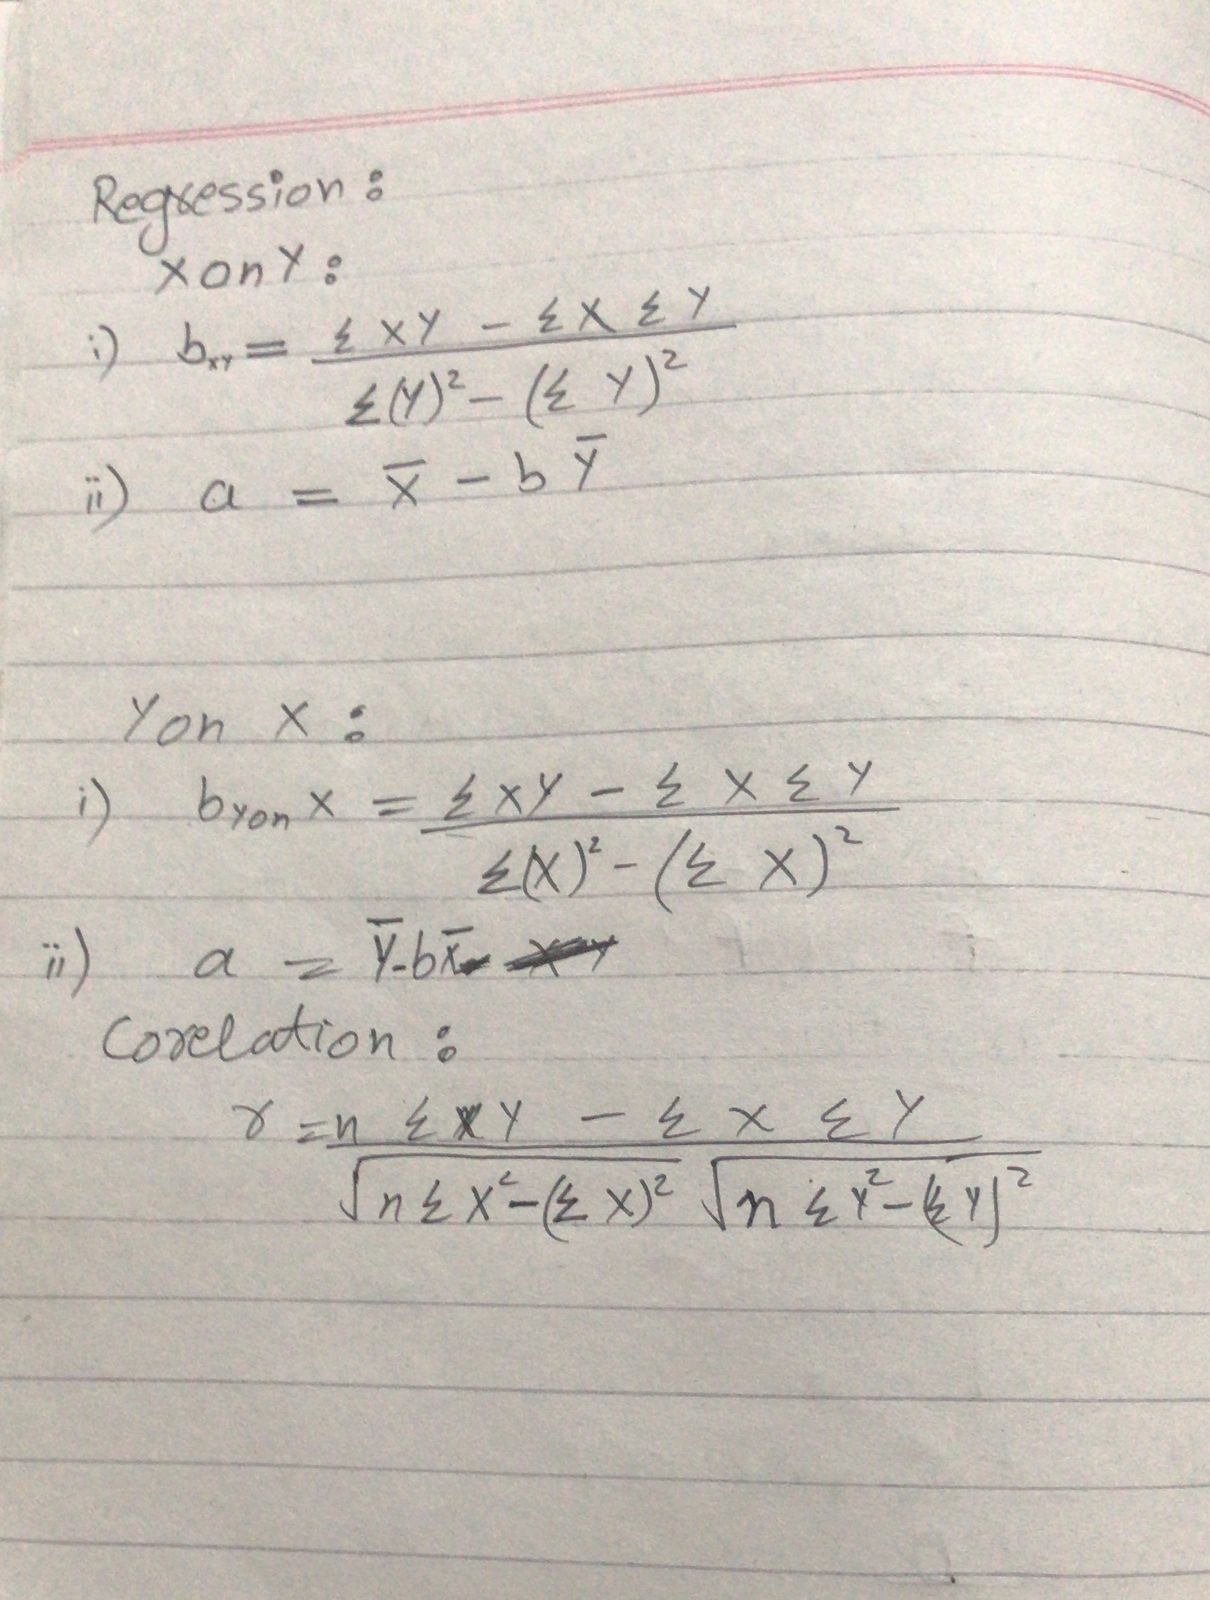 Regression:
X on Y:
i) bxy = Σ XY - ΣX ΣY
Σ(Y)² - (Σ Y)²
ii) a = X̅ - b Y̅
Y on X:
i) bYon X = Σ XY - Σ X Σ Y
Σ(X)² - (Σ X)²
ii) a = Y̅ - bX̅
Corelation:
r = n Σ XY - Σ X Σ Y
√n Σ X² - (Σ X)² √n Σ Y² - (Σ Y)²